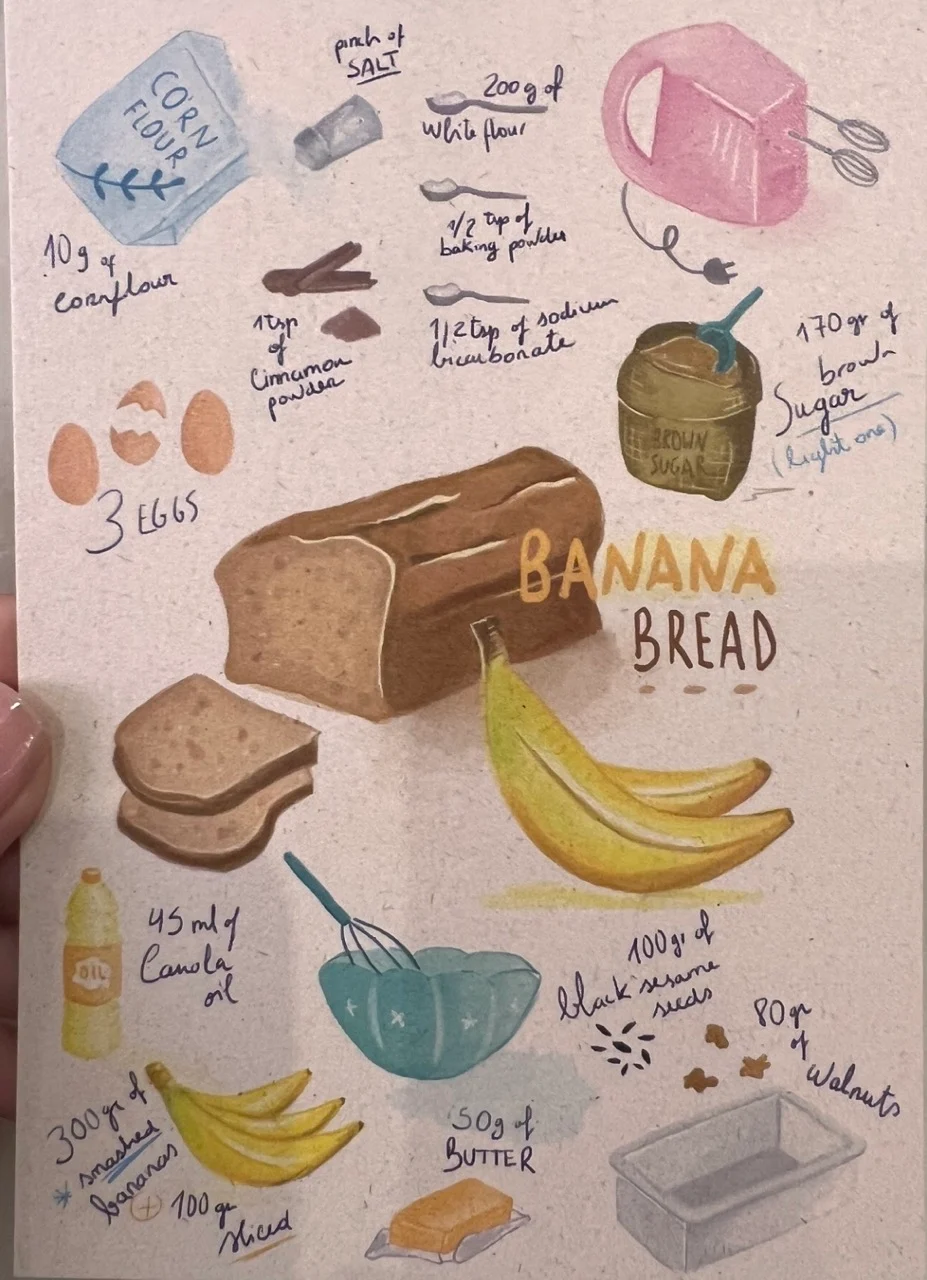 CORN
FLOUR
10g of
cornflour
pinch of
SALT
200g of
white flour
1/2 tsp of
baking powder
1/2 tsp of sodium
bicarbonate
1 tsp
of
Cinnamon
powder
170 gr of
brown
Sugar
(light one)
BROWN
SUGAR
3 EGGS
BANANA
BREAD
45 ml of
Canola
oil
OIL
100gr of
black sesame
seeds
80 gr
of
walnuts
300 gr of
* smashed
bananas
+ 100 gr
sliced
50g of
BUTTER